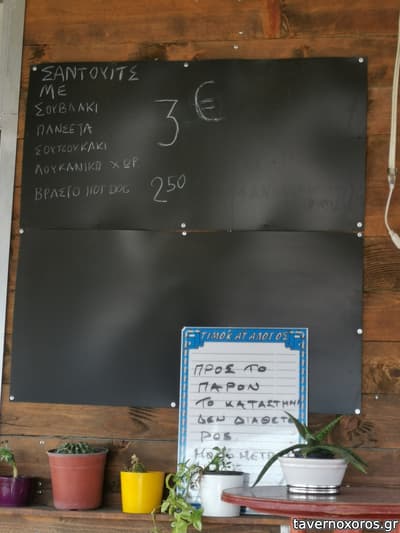 ΣΑΝΤΟΥΙΤΣ
ΜΕ
ΣΟΥΒΛΑΚΙ
ΠΑΝΣΕΤΑ
ΣΟΥΤΖΟΥΚΑΚΙ
ΛΟΥΚΑΝΙΚΟ ΧΩΡ
3 €
ΒΡΑΣΤΟ HOT DOG 2 50
ΤΙΜΟΚΑΤΑΛΟΓΟΣ
ΠΡΟΣ ΤΟ
ΠΑΡΟΝ
ΤΟ ΚΑΤΑΣΤΗΜΑ
ΔΕΝ ΔΙΑΘΕΤΕΙ
POS
tavernoxoros.gr